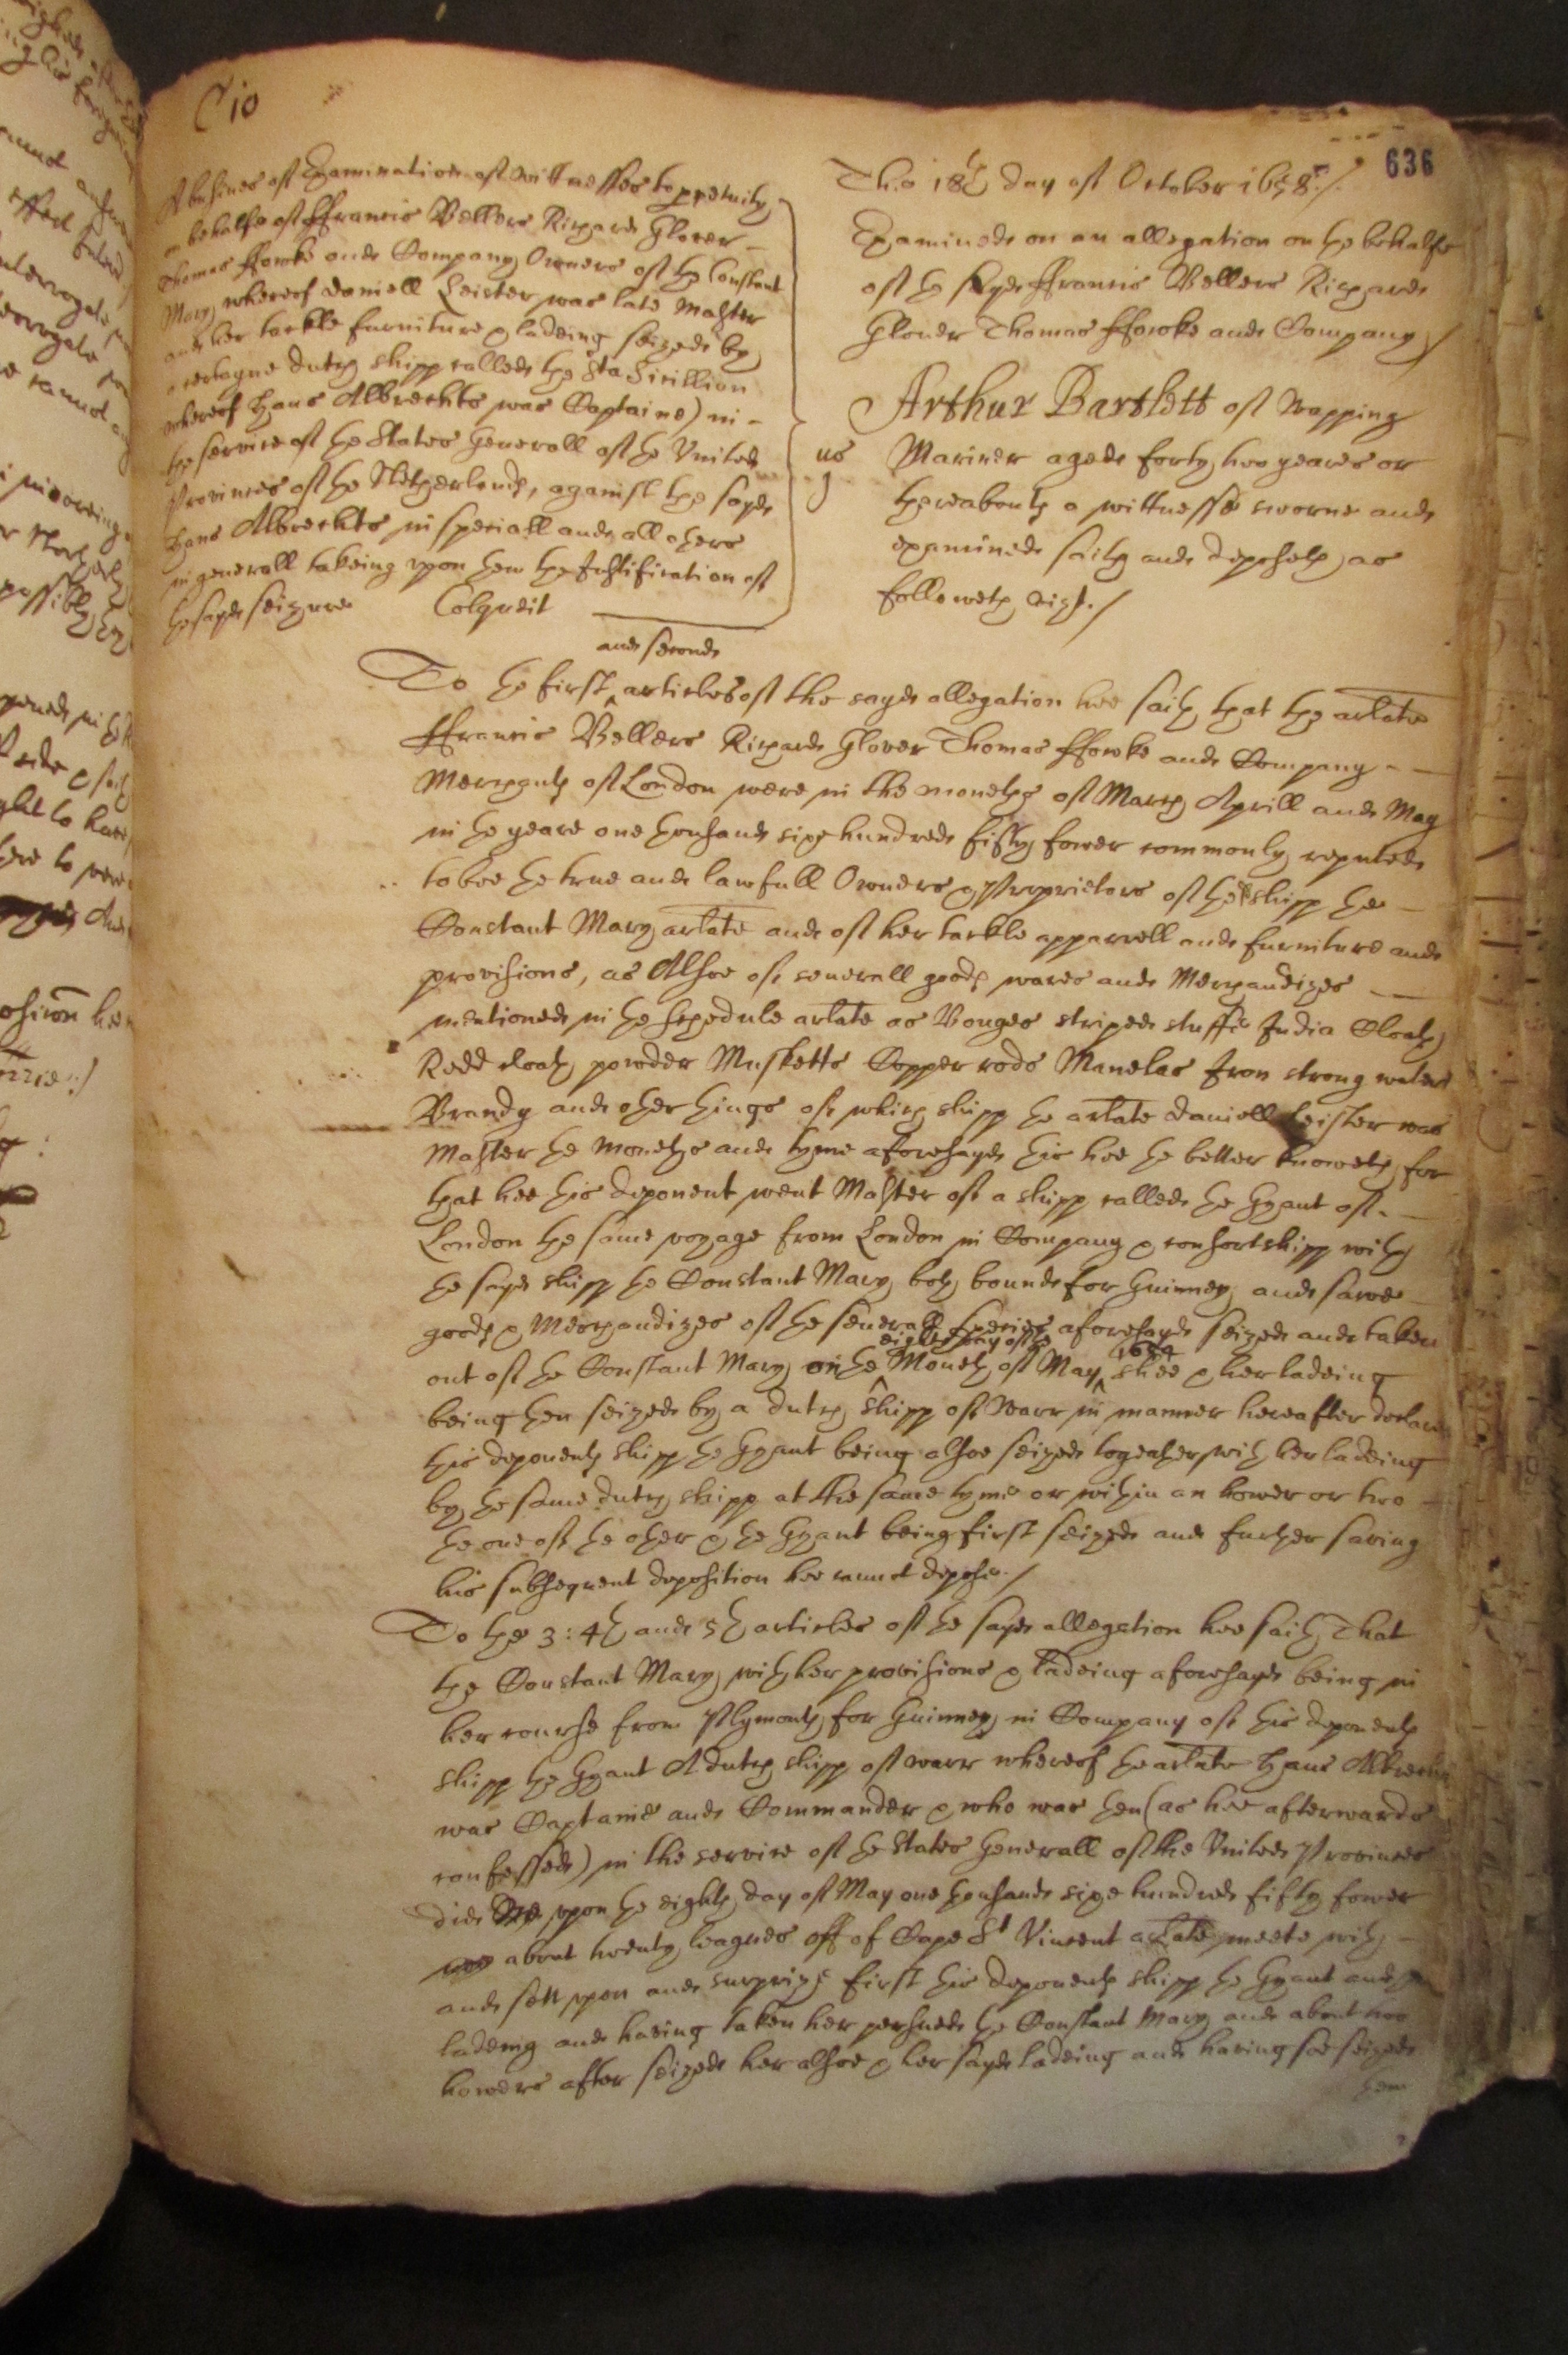 636
A busines of Examination of wittnesses to ppetuity
on behalfe of ffrancis Bellers Richard Glover
Thomas ffowke and Company Owners of the Constant
Mary whereof Daniell Leister was late Master
and her tackle furniture & ladeing seized by
a certayne dutch shipp called the Sta
whereof Hans Albrechts was Captaine) in
the service of the States Generall of the United
Provinces of the Netherlands, against the sayd
Hans Albrechts in speciall and all others
in generall takeing upon them the Justification of
the sayd seizure Colquit
The 18th day of October 1658./
Examined on an allegation on the behalfe
of the sayd ffrancis Bellers Richard
Glover Thomas ffowke and Company /
Arthur Bartlett of Wapping
Mariner aged forty two yeares or
thereabouts a wittnesse sworne and
examined saith and deposeth as
followeth vizt./
us
j
and second
To the first articles of the sayd allegation hee saith that the arlate
ffrancis Bellers Richard Glover Thomas ffowke and Company
Merchants of London were in the moneths of March Aprill and May
in the yeare one thousand sixe hundred fifty fower commonly reputed
to bee the true and lawfull Owners & Proprietors of the shipp the
Constant Mary arlate and of her tackle apparrell and furniture and
provisions, as Alsoe of severall goods wares and Merchandizes
mentioned in the schedule arlate as Bouges striped stuffe India Cloath
Redd cloath powder Musketts Copper rods Manelas Iron strong waters
Brandy and other things of which shipp the arlate Daniell Leister was
Master the moneths and tyme aforesayd this hee the better knoweth for
that hee this deponent went Master of a shipp called the Gyant of
London the same voyage from London in Company & consortshipp with
the sayd shipp the Constant Mary both bound for Guinney and sawe
goods & Merchandizes of the severall species aforesayd seized and taken
eighth day of the 1654
out of the Constant Mary on the Moneth of May shee & her ladeing
being then seized by a dutch shipp of Warr in manner hereafter declared
this deponents shipp the Gyant being alsoe seized togeather with her ladeing
by the same dutch shipp at the same tyme or within an hower or two
the one of the other & the Gyant being first seized and further saving
his subsequent deposition hee cannot depose./
To the 3: 4th and 5th articles of the sayd allegation hee saith That
the Constant Mary with her provisions & ladeing aforesayd being in
her course from Plymouth for Guinney in Company of this deponents
shipp the Gyant A dutch shipp of warr whereof the arlate Hans Albrechts
was Captaine and Commander & who was then (as hee afterwards
confessed) in the service of the States Generall of the United Provinces
did upon the eighth day of May one thousand sixe hundred fifty fower
about twenty leagues off of Cape St Vincent arlate meete with
and sett upon and surprize first this deponents shipp the Gyant and
ladeing and having taken her persued the Constant Mary and about two
howers after seized her alsoe & her sayd ladeing and having soe seized
them